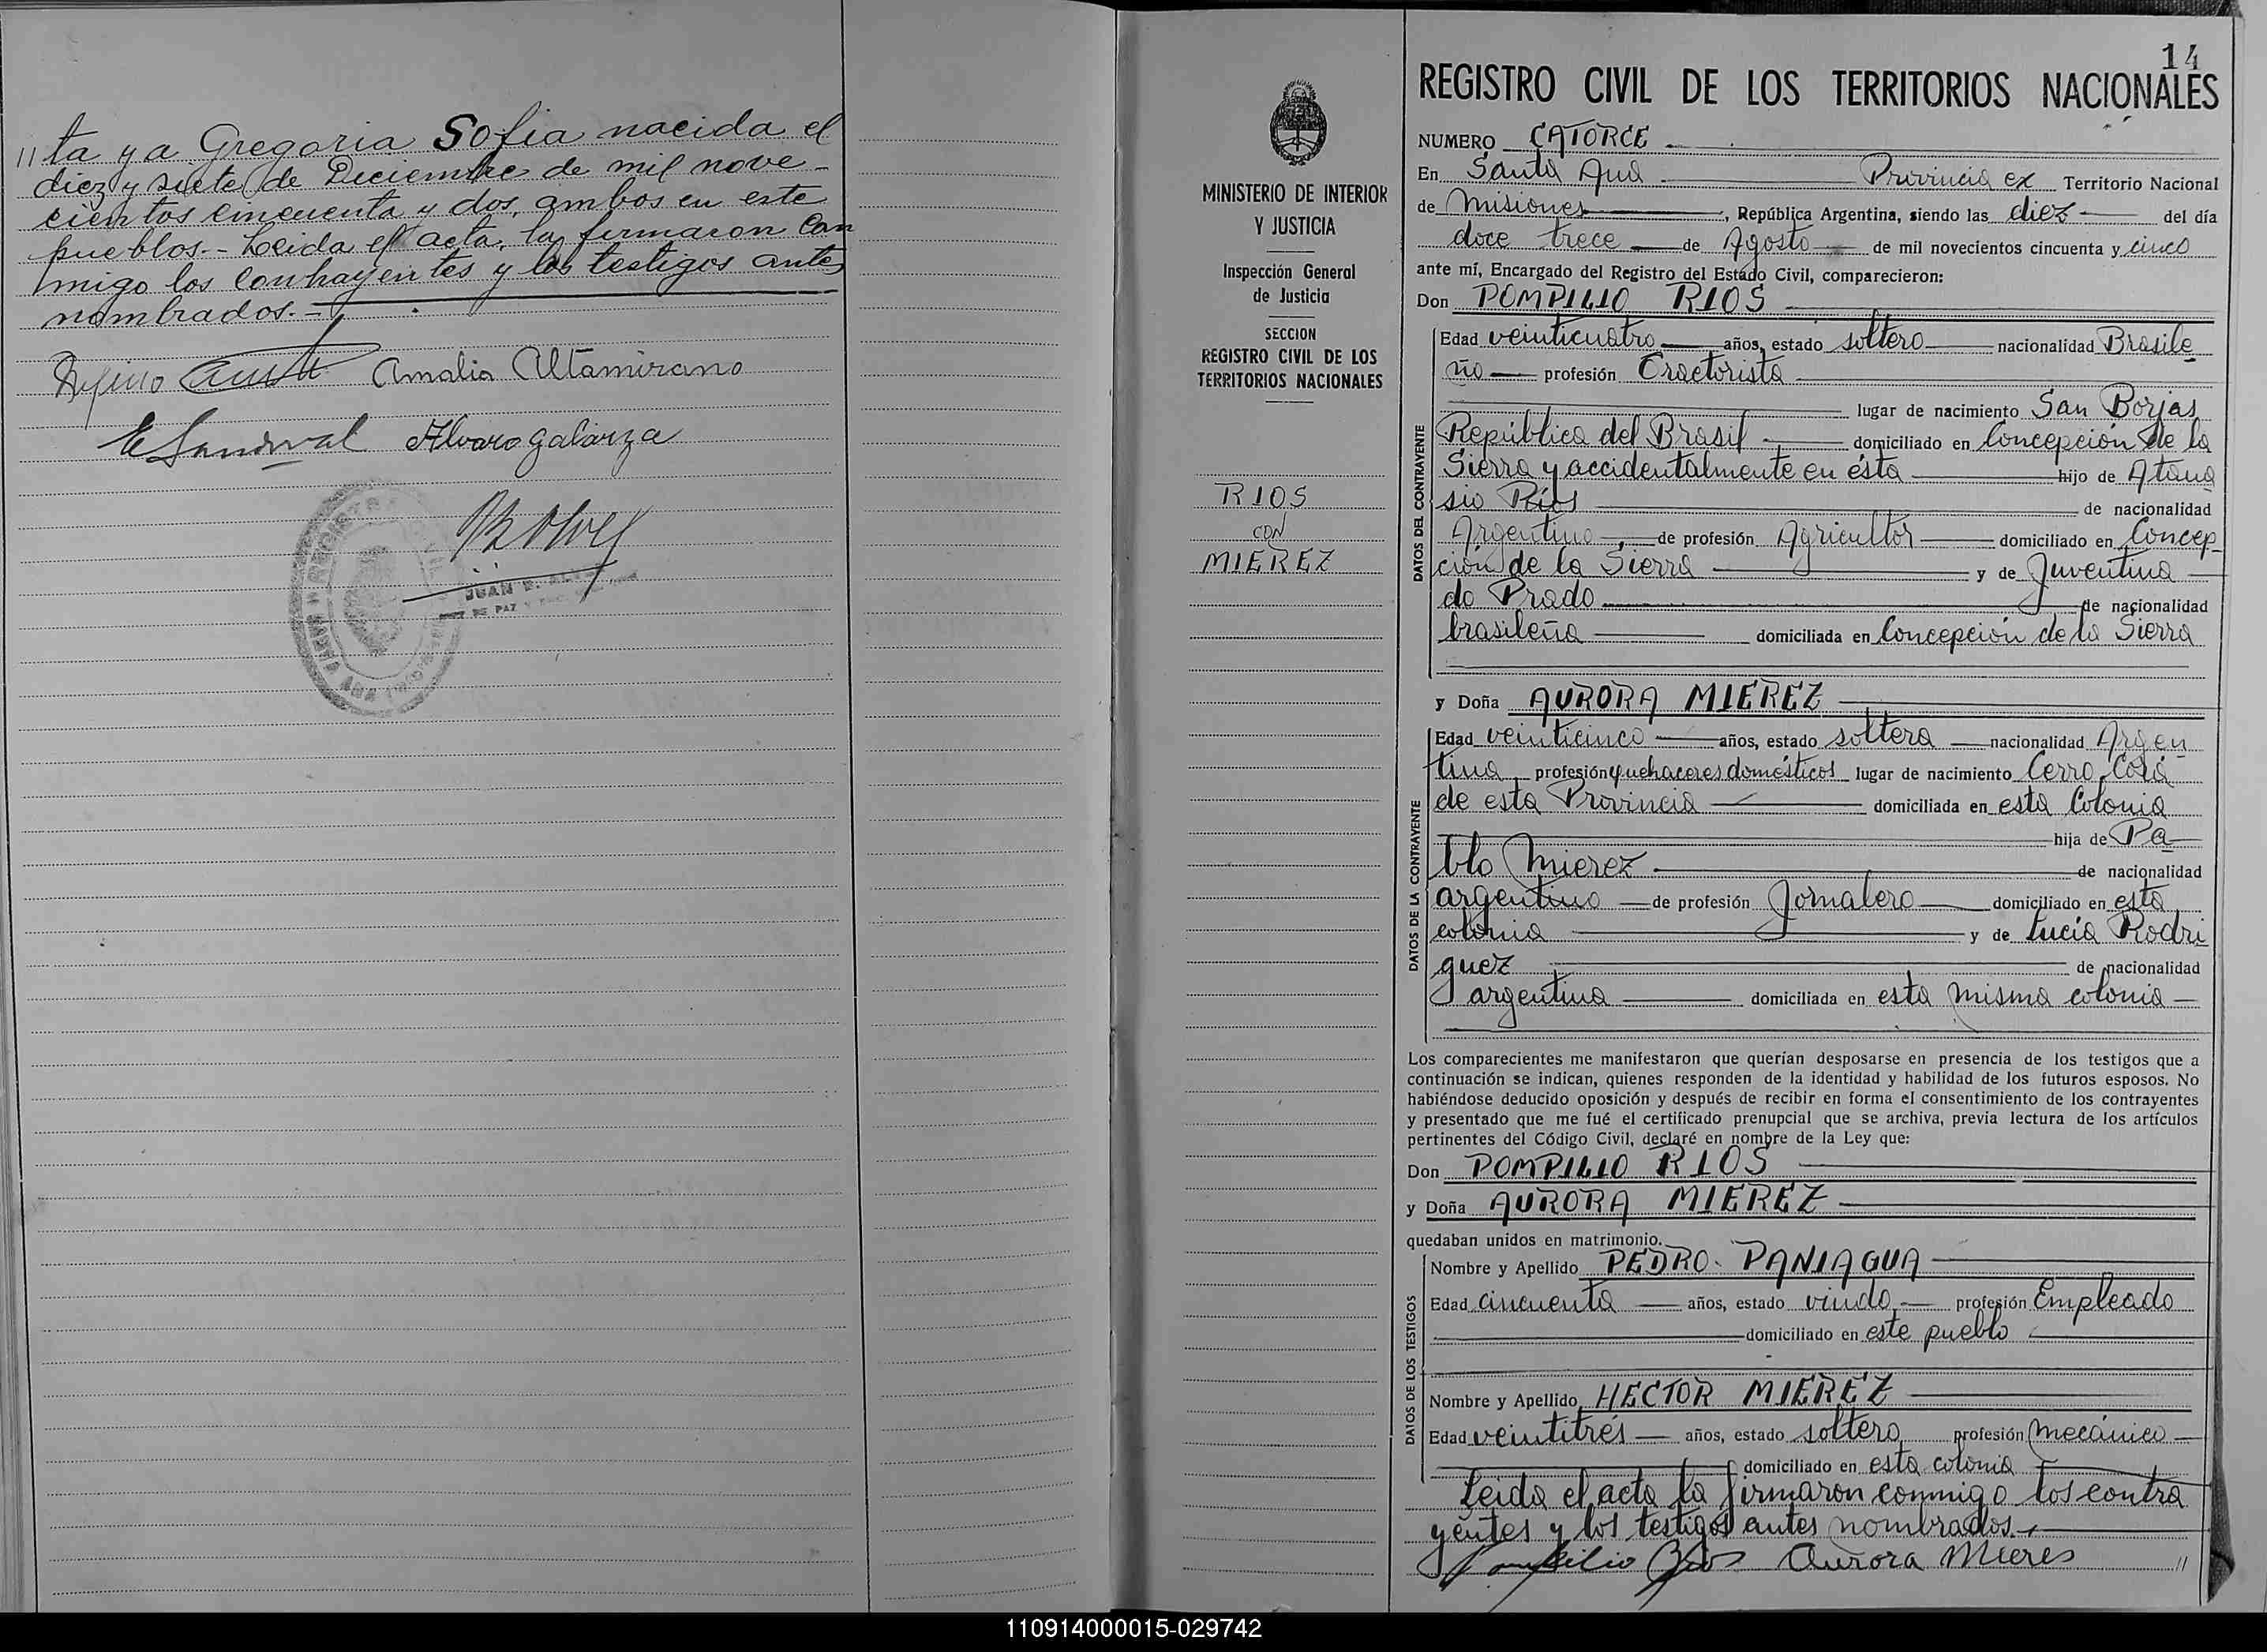 //ta y a Gregoria Sofia nacida el
diez y siete de Diciembre de mil nove-
cientos cincuenta y dos, ambos en este
pueblos.- Leida el acta, la firmaron con
migo los contrayentes y los testigos antes
nombrados.-
Amalia Altamirano
E Sandoval Alvaro galarza
JUAN B.
DE PAZ
14
MINISTERIO DE INTERIOR
Y JUSTICIA
Inspección General
de Justicia
SECCION
REGISTRO CIVIL DE LOS
TERRITORIOS NACIONALES
RIOS
CON
MIEREZ
REGISTRO CIVIL DE LOS TERRITORIOS NACIONALES
NUMERO CATORCE
En Santa Ana Provincia ex Territorio Nacional
de Misiones, República Argentina, siendo las diez del día
doce trece de Agosto de mil novecientos cincuenta y cinco
ante mí, Encargado del Registro del Estado Civil, comparecieron:
Don POMPILIO RIOS
DATOS DEL CONTRAYENTE
Edad veinticuatro años, estado soltero nacionalidad Brasile-
ño profesión Tractorista
lugar de nacimiento San Borjas
República del Brasil domiciliado en Concepción de la
Sierra y accidentalmente en ésta hijo de Atana
sio Ríos de nacionalidad
Argentino, de profesión Agricultor domiciliado en Concep-
ción de la Sierra y de Juventina
do Prado de nacionalidad
brasileña domiciliada en Concepción de la Sierra
y Doña AURORA MIEREZ
DATOS DE LA CONTRAYENTE
Edad veinticinco años, estado soltera nacionalidad Argen-
tina profesión quehaceres domésticos lugar de nacimiento Cerro Corá
de esta Provincia domiciliada en esta Colonia
hija de Pa-
blo Mierez de nacionalidad
argentino de profesión Jornalero domiciliado en esta
colonia y de Lucía Rodri
guez de nacionalidad
argentina domiciliada en esta misma colonia
Los comparecientes me manifestaron que querían desposarse en presencia de los testigos que a
continuación se indican, quienes responden de la identidad y habilidad de los futuros esposos. No
habiéndose deducido oposición y después de recibir en forma el consentimiento de los contrayentes
y presentado que me fué el certificado prenupcial que se archiva, previa lectura de los artículos
pertinentes del Código Civil, declaré en nombre de la Ley que:
Don POMPILIO RIOS
y Doña AURORA MIEREZ
quedaban unidos en matrimonio.
DATOS DE LOS TESTIGOS
Nombre y Apellido PEDRO PANIAGUA
Edad cincuenta años, estado viudo profesión Empleado
domiciliado en este pueblo
Nombre y Apellido HECTOR MIEREZ
Edad veintitrés años, estado soltero profesión mecánico
domiciliado en esta colonia
Leida el acta la firmaron conmigo los contra
yentes y los testigos antes nombrados.-
Pompilio Rios Aurora Mieres //
110914000015-029742